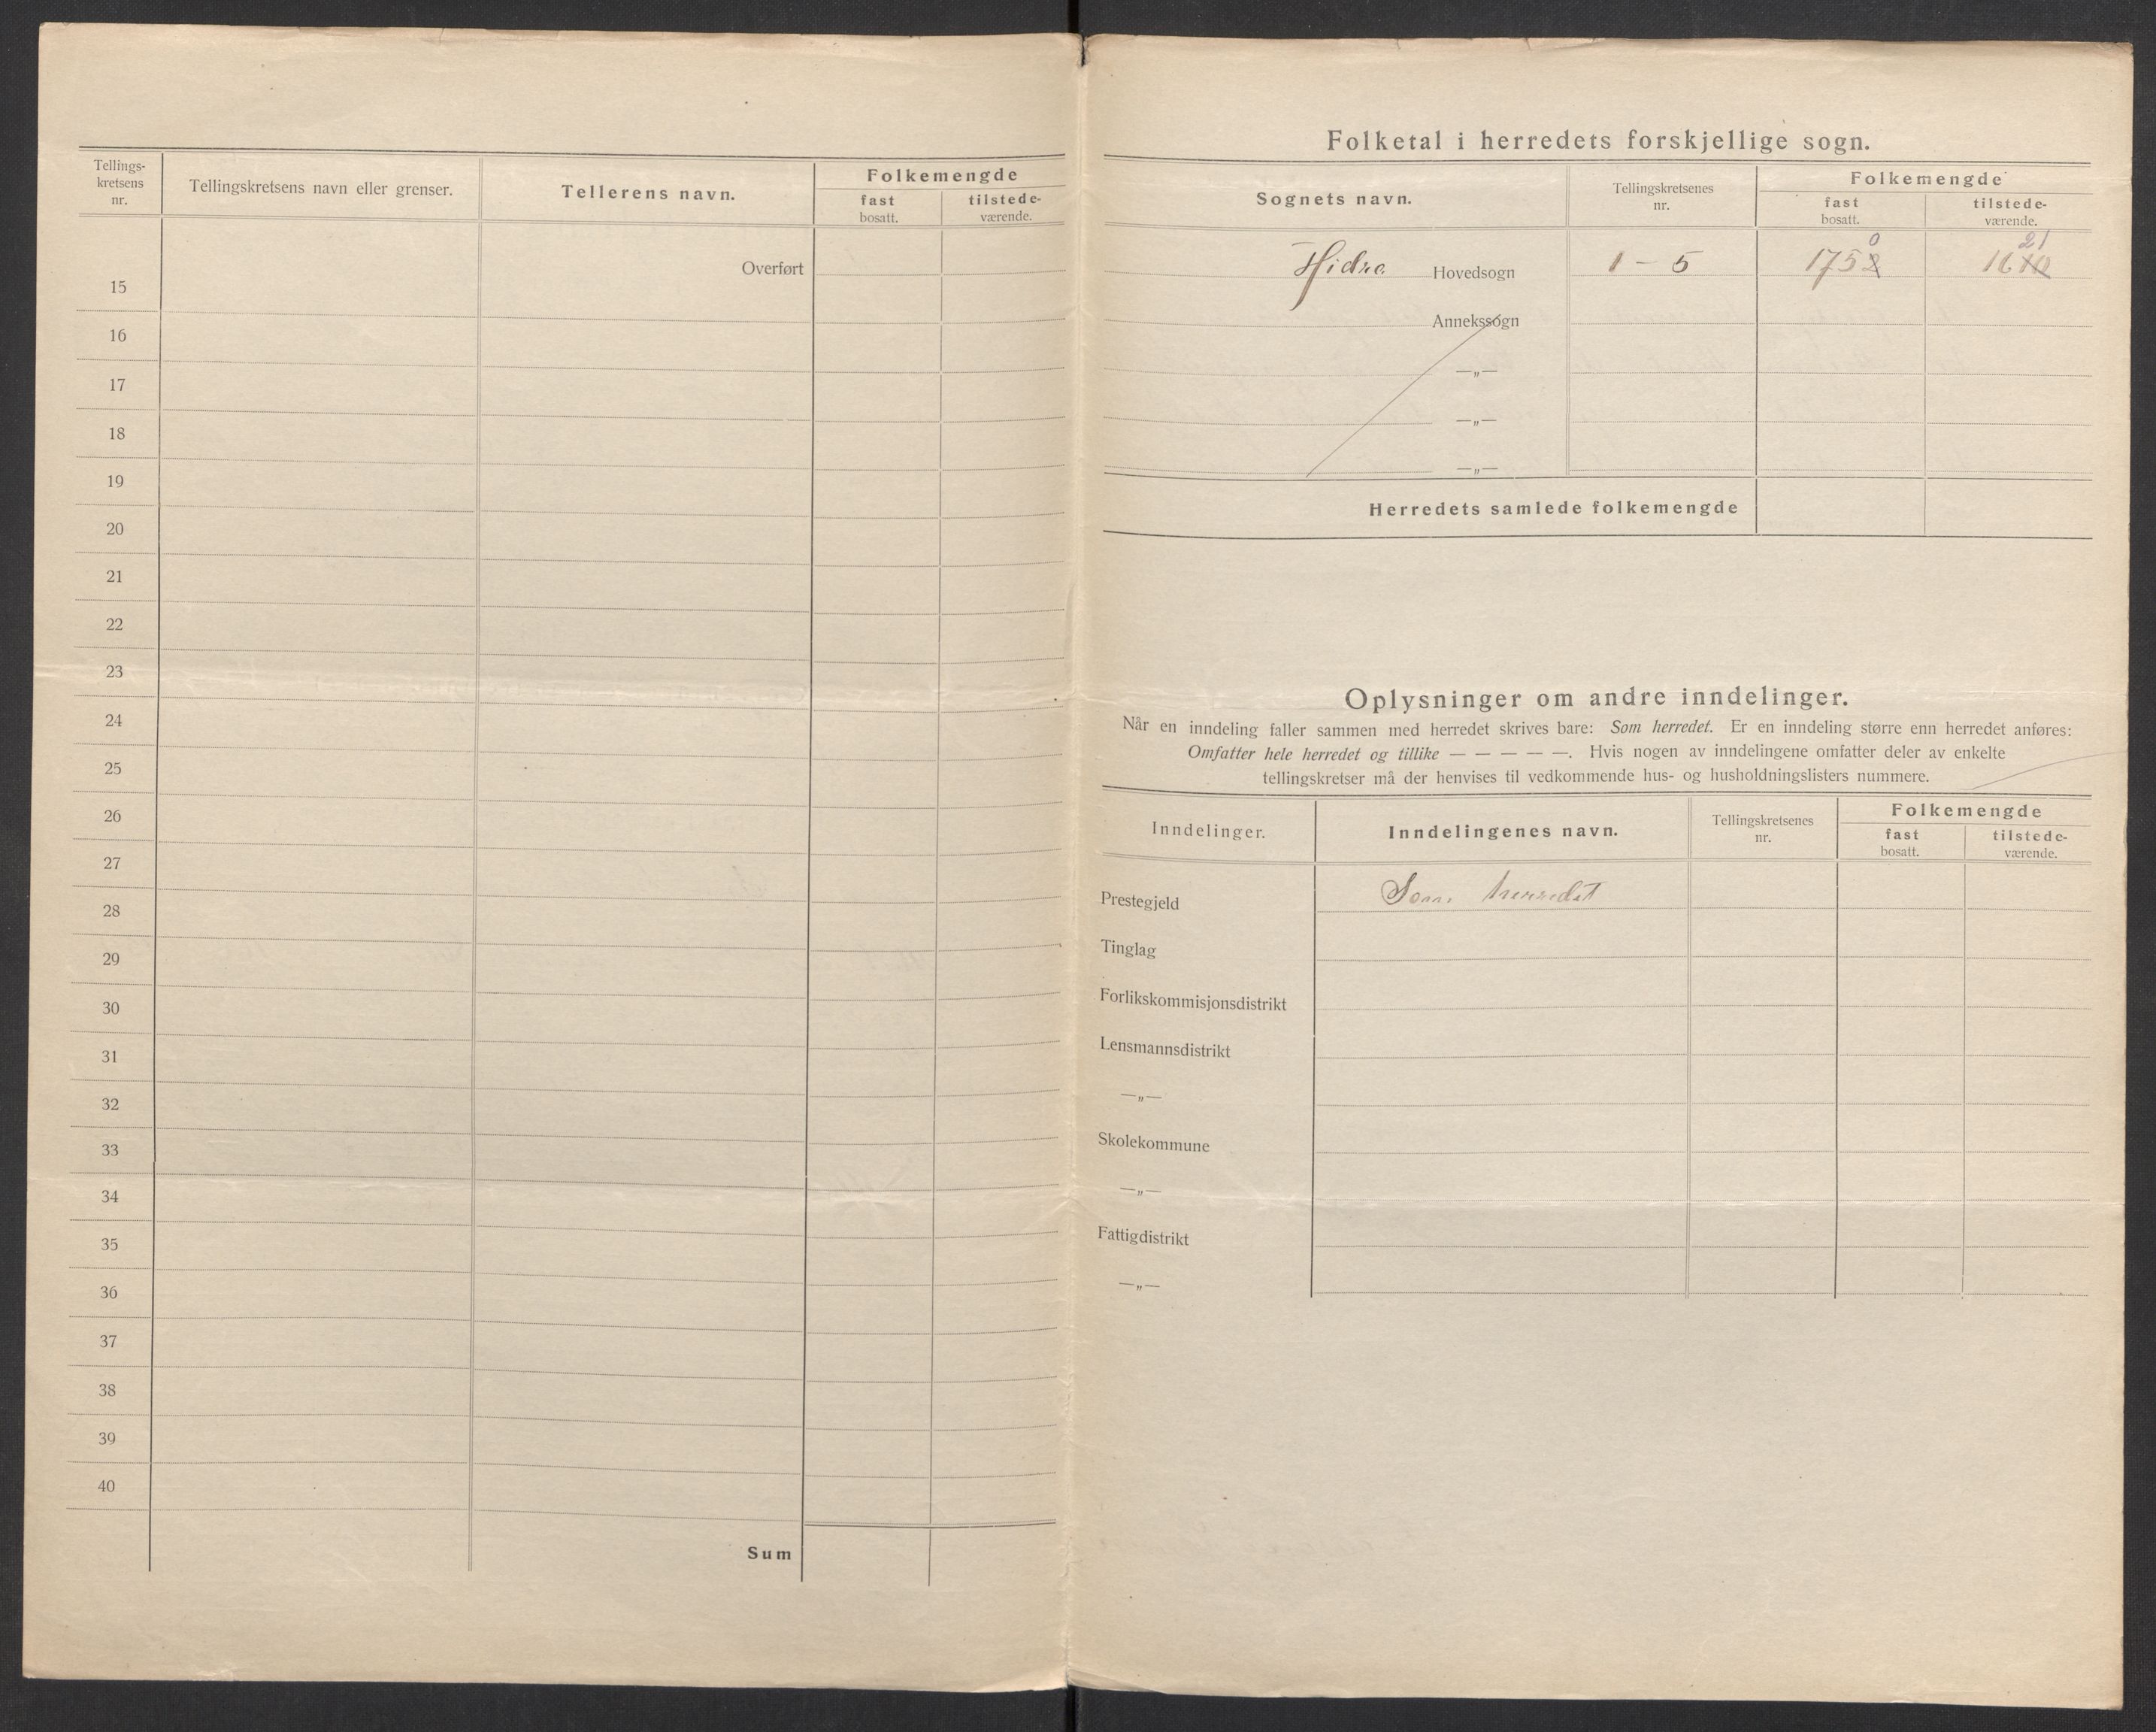 Tellings-
kretsens
nr.
Tellingskretsens navn eller grenser.
Tellerens navn.
Folkemengde
fast
bosatt.
tilstede-
værende.
Overført
15
16
17
18
19
20
21
22
23
24
25
26
27
28
29
30
31
32
33
34
35
36
37
38
39
40
Sum
Folketal i herredets forskjellige sogn.
Sognets navn.
Tellingskretsenes
nr.
Folkemengde
fast
bosatt.
tilstede-
værende.
0 21
Hidra Hovedsogn 1 - 5 1752
Annekssogn
—„—
—„—
—„—
Herredets samlede folkemengde
Oplysninger om andre inndelinger.
Når en inndeling faller sammen med herredet skrives bare: Som herredet. Er en inndeling større enn herredet anføres:
Omfatter hele herredet og tillike — — — — —. Hvis nogen av inndelingene omfatter deler av enkelte
tellingskretser må der henvises til vedkommende hus- og husholdningslisters nummere.
Inndelinger.
Inndelingenes navn.
Tellingskretsenes
nr.
Folkemengde
fast
bosatt.
tilstede-
værende.
Prestegjeld Som herredet
Tinglag
Forlikskommisjonsdistrikt
Lensmannsdistrikt
—„—
Skolekommune
—„—
Fattigdistrikt
—„—